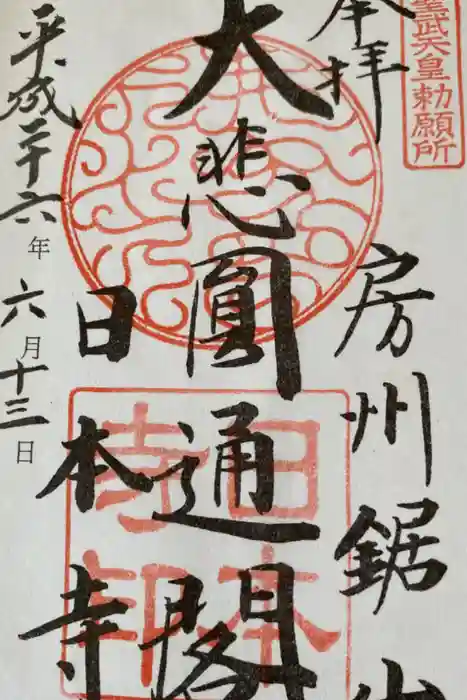 聖武天皇勅願所
奉拝
房州鋸山
大悲圓通閣
日本寺
平成二十六年六月十三日
日本寺印